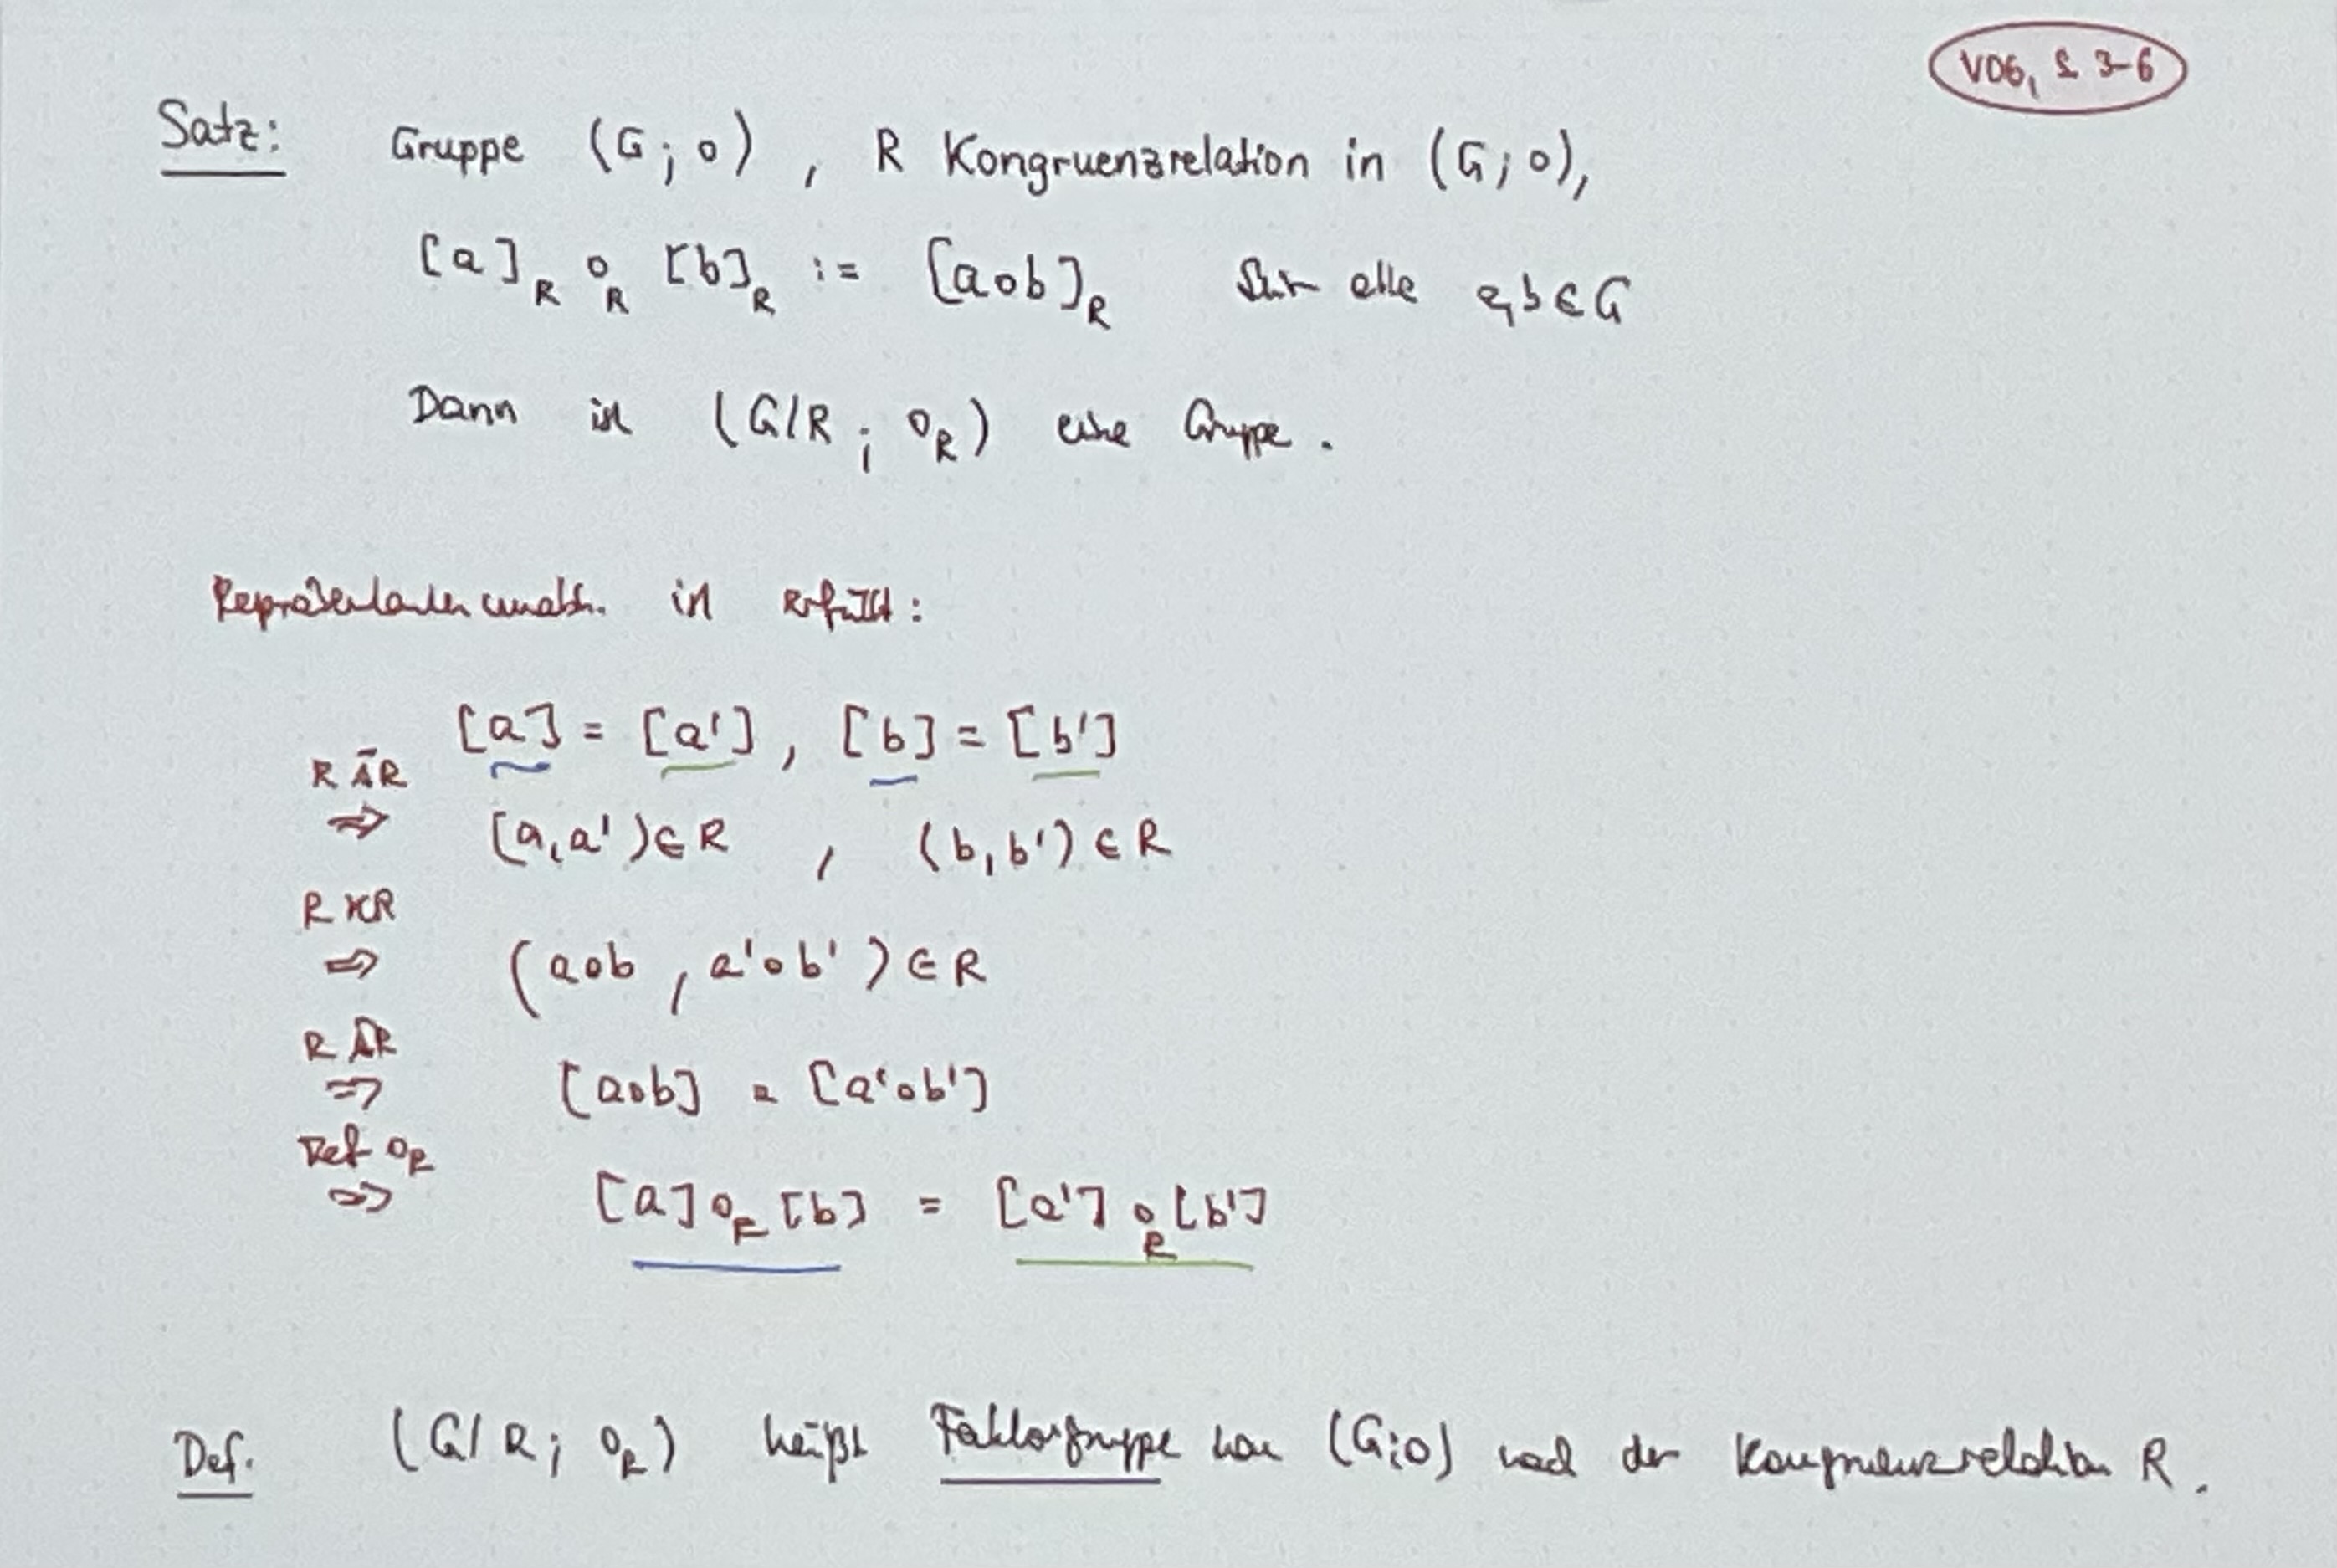 V06, S 3-6
Satz: Gruppe (G; ∘), R Kongruenzrelation in (G; ∘),
[a]_R ∘_R [b]_R := [a∘b]_R für alle a,b ∈ G
Dann ist (G/R; ∘_R) eine Gruppe.
Repräsentantenunabh. ist erfüllt:
[a] = [a'], [b] = [b']
R ÄR
⇒ (a,a') ∈ R , (b,b') ∈ R
R KR
⇒ (a∘b, a'∘b') ∈ R
R ÄR
⇒ [a∘b] = [a'∘b']
Def ∘_R
⇒ [a] ∘_R [b] = [a'] ∘_R [b']
Def. (G/R; ∘_R) heißt Faktorgruppe von (G;∘) nach der Kongruenzrelation R.